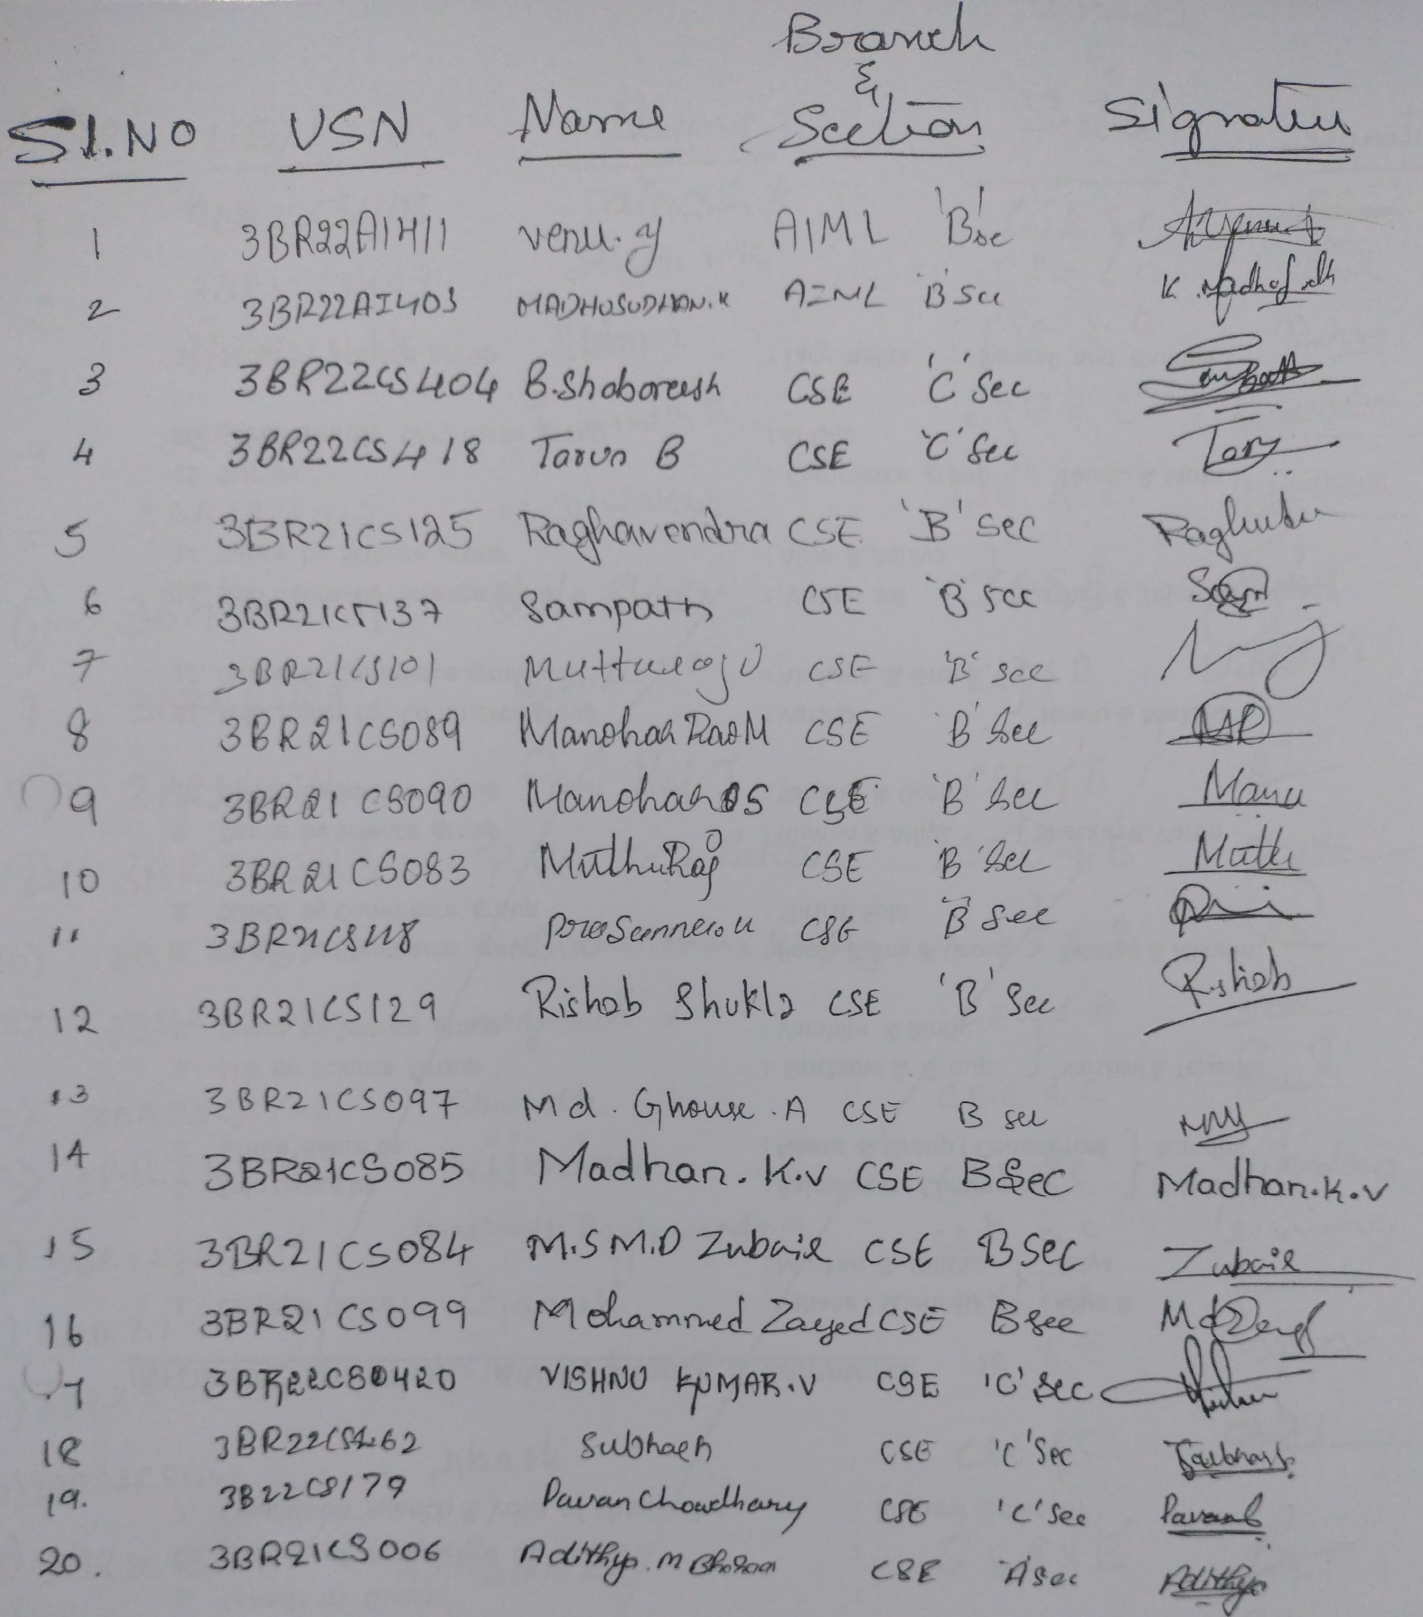 Branch
&
Sl.NO USN Name Section Signature
1 3BR22AI411 Venu. y AIML 'B' sec
2 3BR22AI403 MADHUSUDHAN.K AIML 'B' Sec
3 3BR22CS404 B.Shabareesh CSE 'C' Sec
4 3BR22CS418 Tarun B CSE 'C' Sec
5 3BR21CS125 Raghavendra CSE 'B' sec
6 3BR21CS137 Sampath CSE 'B' sec Sam
7 3BR21CS101 Mutturaju CSE 'B' sec
8 3BR21CS089 Manohar Rao M CSE 'B' Sec
9 3BR21CS090 Manohar CSE 'B' Sec Manu
10 3BR21CS083 MuthuRaj CSE 'B' Sec Muthu
11 CSE 'B' Sec
12 3BR21CS129 Rishab Shukla CSE 'B' Sec Rishab
13 3BR21CS097 Md. Ghouse .A CSE B sec
14 3BR21CS085 Madhan. K.V CSE B Sec Madhan.K.V
15 3BR21CS084 M.S M.D Zubair CSE B Sec Zubair
16 3BR21CS099 Mohammed Zayed CSE B Sec
VISHNU KUMAR.V CSE 'C' Sec
18 Subhash CSE 'C' Sec Subhash
19. 3B22CS179 Pavan Chowdhary CSE 'C' Sec
20. 3BR21CS006 Adithya. M CSE 'A' Sec Adithya